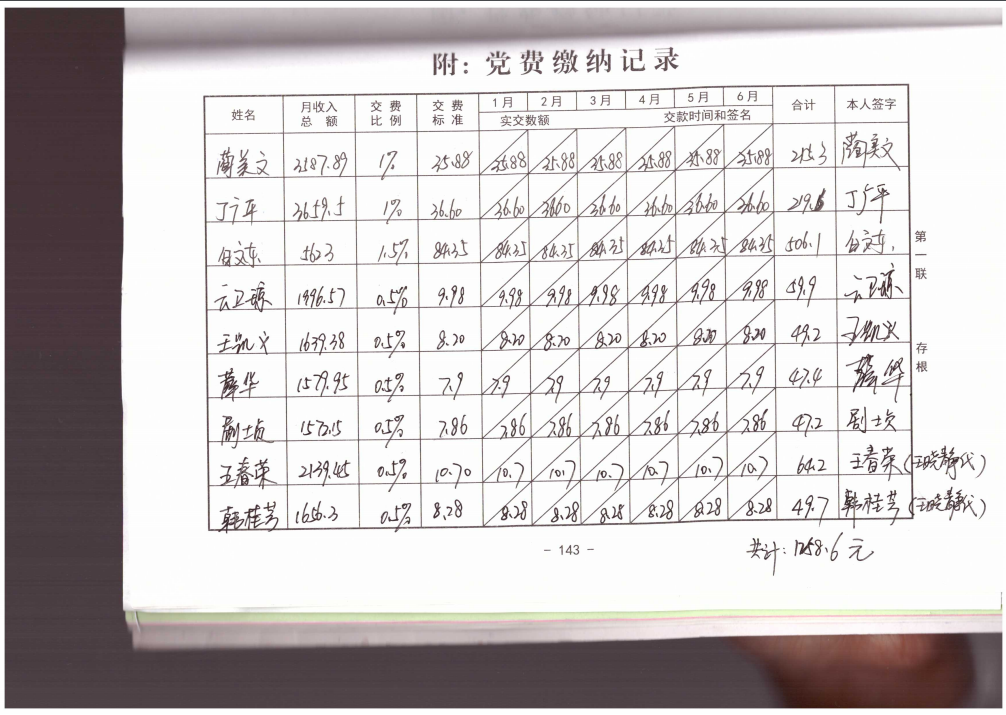 附：党费缴纳记录
姓名 月收入总额 交费比例 交费标准 1月 2月 3月 4月 5月 6月 合计 本人签字
实交数额 交款时间和签名
蔺美文 3587.89 1% 35.88 35.88 35.88 35.88 35.88 35.88 35.88 215.3 蔺美文
丁广平 3659.5 1% 36.60 36.60 36.60 36.60 36.60 36.60 36.60 219.6 丁广平
白文东 5623 1.5% 84.35 84.35 84.35 84.35 84.35 84.35 84.35 506.1 白文东
云卫琼 1996.57 0.5% 9.98 9.98 9.98 9.98 9.98 9.98 9.98 59.9 云卫琼
王凯义 1639.38 0.5% 8.20 8.20 8.20 8.20 8.20 8.20 8.20 49.2 王凯义
薛华 1579.95 0.5% 7.9 7.9 7.9 7.9 7.9 7.9 7.9 47.4 薛华
剧士贞 1572.15 0.5% 7.86 7.86 7.86 7.86 7.86 7.86 7.86 47.2 剧士贞
王春荣 2139.45 0.5% 10.70 10.7 10.7 10.7 10.7 10.7 10.7 64.2 王春荣(王晓静代)
韩桂芳 1656.3 0.5% 8.28 8.28 8.28 8.28 8.28 8.28 8.28 49.7 韩桂芳(王晓静代)
第一联 存根
- 143 -
共计：1258.6元